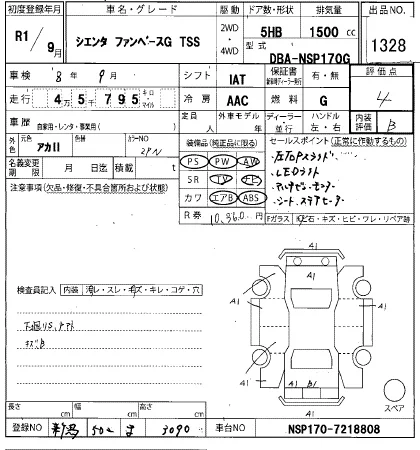 初度登録年月 車名・グレード 駆動 ドア数・形状 排気量 出品NO.
R1/9月 シエンタ ファンベースG TSS 2WD・4WD 5HB 1500cc 1328
型式 DBA-NSP170G
車検 8年 9月 シフト IAT 保証書 有・無 評価点
走行 4万5千795 キロ・マイル 冷房 AAC 燃料 G 4
車歴 自家用・レンタ・事業用( ) 定員 人 外車モデル ディーラー 並行 ハンドル 左・右 内装評価 B
外色 アカII カラーNO 2PN 装備品(純正品に限る) セールスポイント(正常に作動するもの)
名義変更期限 月 日迄 積載 t PS PW AW
注意事項(欠品・修復・不具合箇所および状態) SR TV
LEDライト
カワ エアB ABS
R券 10,360円 Fガラス 飛石・キズ・ヒビ・ワレ・リペア跡
検査員記入 内装 汚レ・スレ・キズ・キレ・コゲ・穴
A1
A1
A1
A1
A1
A1 B1
下廻りS
キズB
スペア
長さ cm 幅 cm 高さ cm
登録NO 新潟 502 ま 3090 車台NO NSP170-7218808